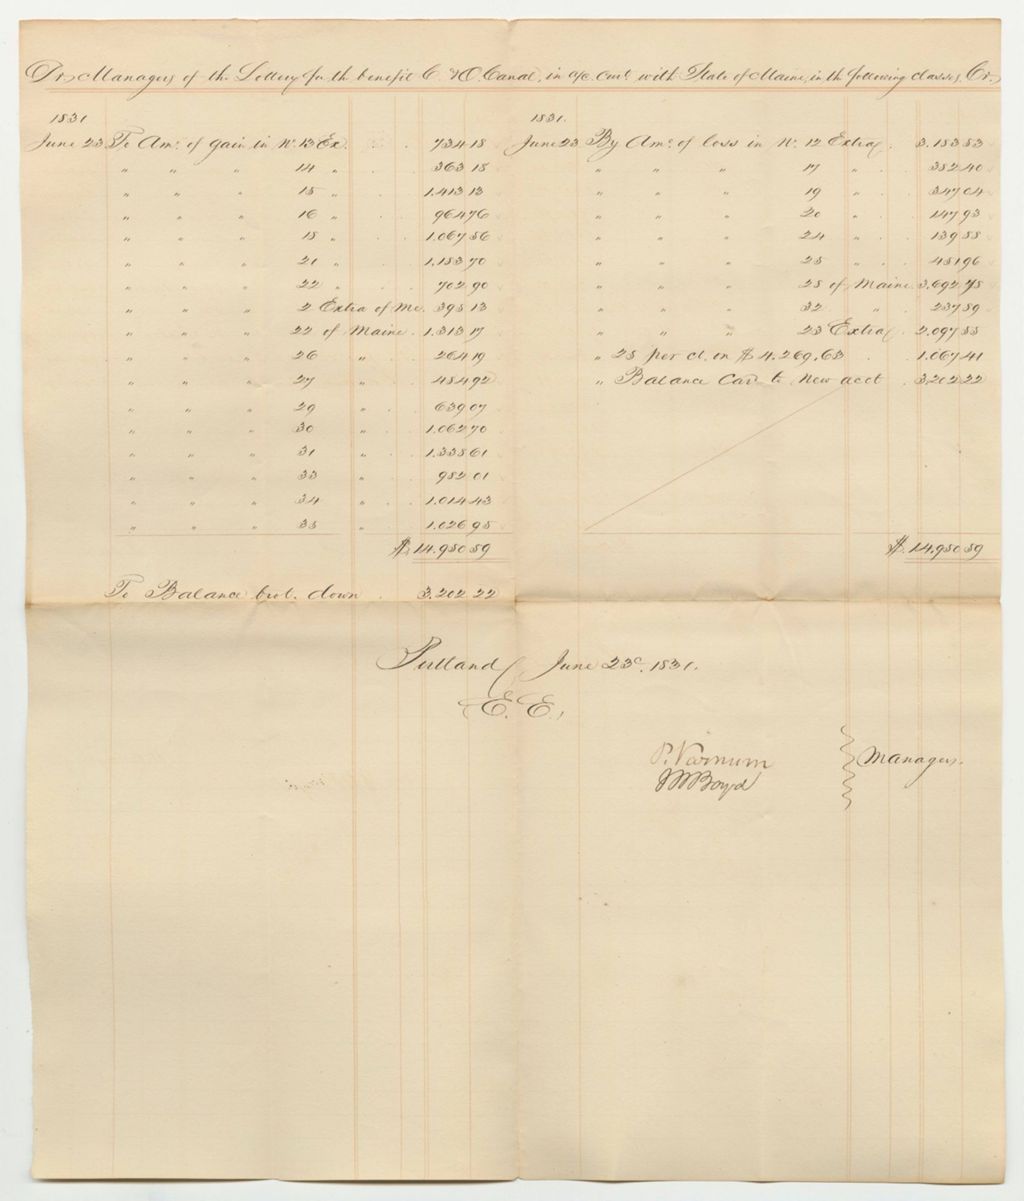 Dr. Managers of the Lottery for the benefit C. & O. Canal, in a/c Cur.t with State of Maine, in the following classes, Cr.
1831 1831.
June 23 To Am.t of gain in No. 13 Ex. 734 18 June 23 By Am.t of loss in No. 12 Extra 3.183 83
" " " 14 " 363 18 " " " 17 " 382 40
" " " 15 " 1.413 13 " " " 19 " 347 04
" " " 16 " 964 76 " " " 20 " 147 93
" " " 18 " 1.067 56 " " " 24 " 139 88
" " " 21 " 1.183 70 " " " 25 " 451 96
" " " 22 " 702 90 " " " 28 of Maine 3.692 78
" " " 2 Extra of Me. 398 13 " " " 32 " 237 59
" " " 22 of Maine 1.313 17 " " " 23 Extra 2.097 55
" " " 26 " 264 19 " 25 per ct. on $4,269.63 1.067 41
" " " 27 " 484 92 " Balance Car.d to New acct 3.202 22
" " " 29 " 639 07
" " " 30 " 1.062 70
" " " 31 " 1.335 61
" " " 33 " 982 01
" " " 34 " 1.014 43
" " " 35 " 1.026 95
$14.950 59 $14.950 59
To Balance bro.t down 3.202 22
Portland June 23d. 1831.
E. E.
P. Varnum
JM Boyd Managers.